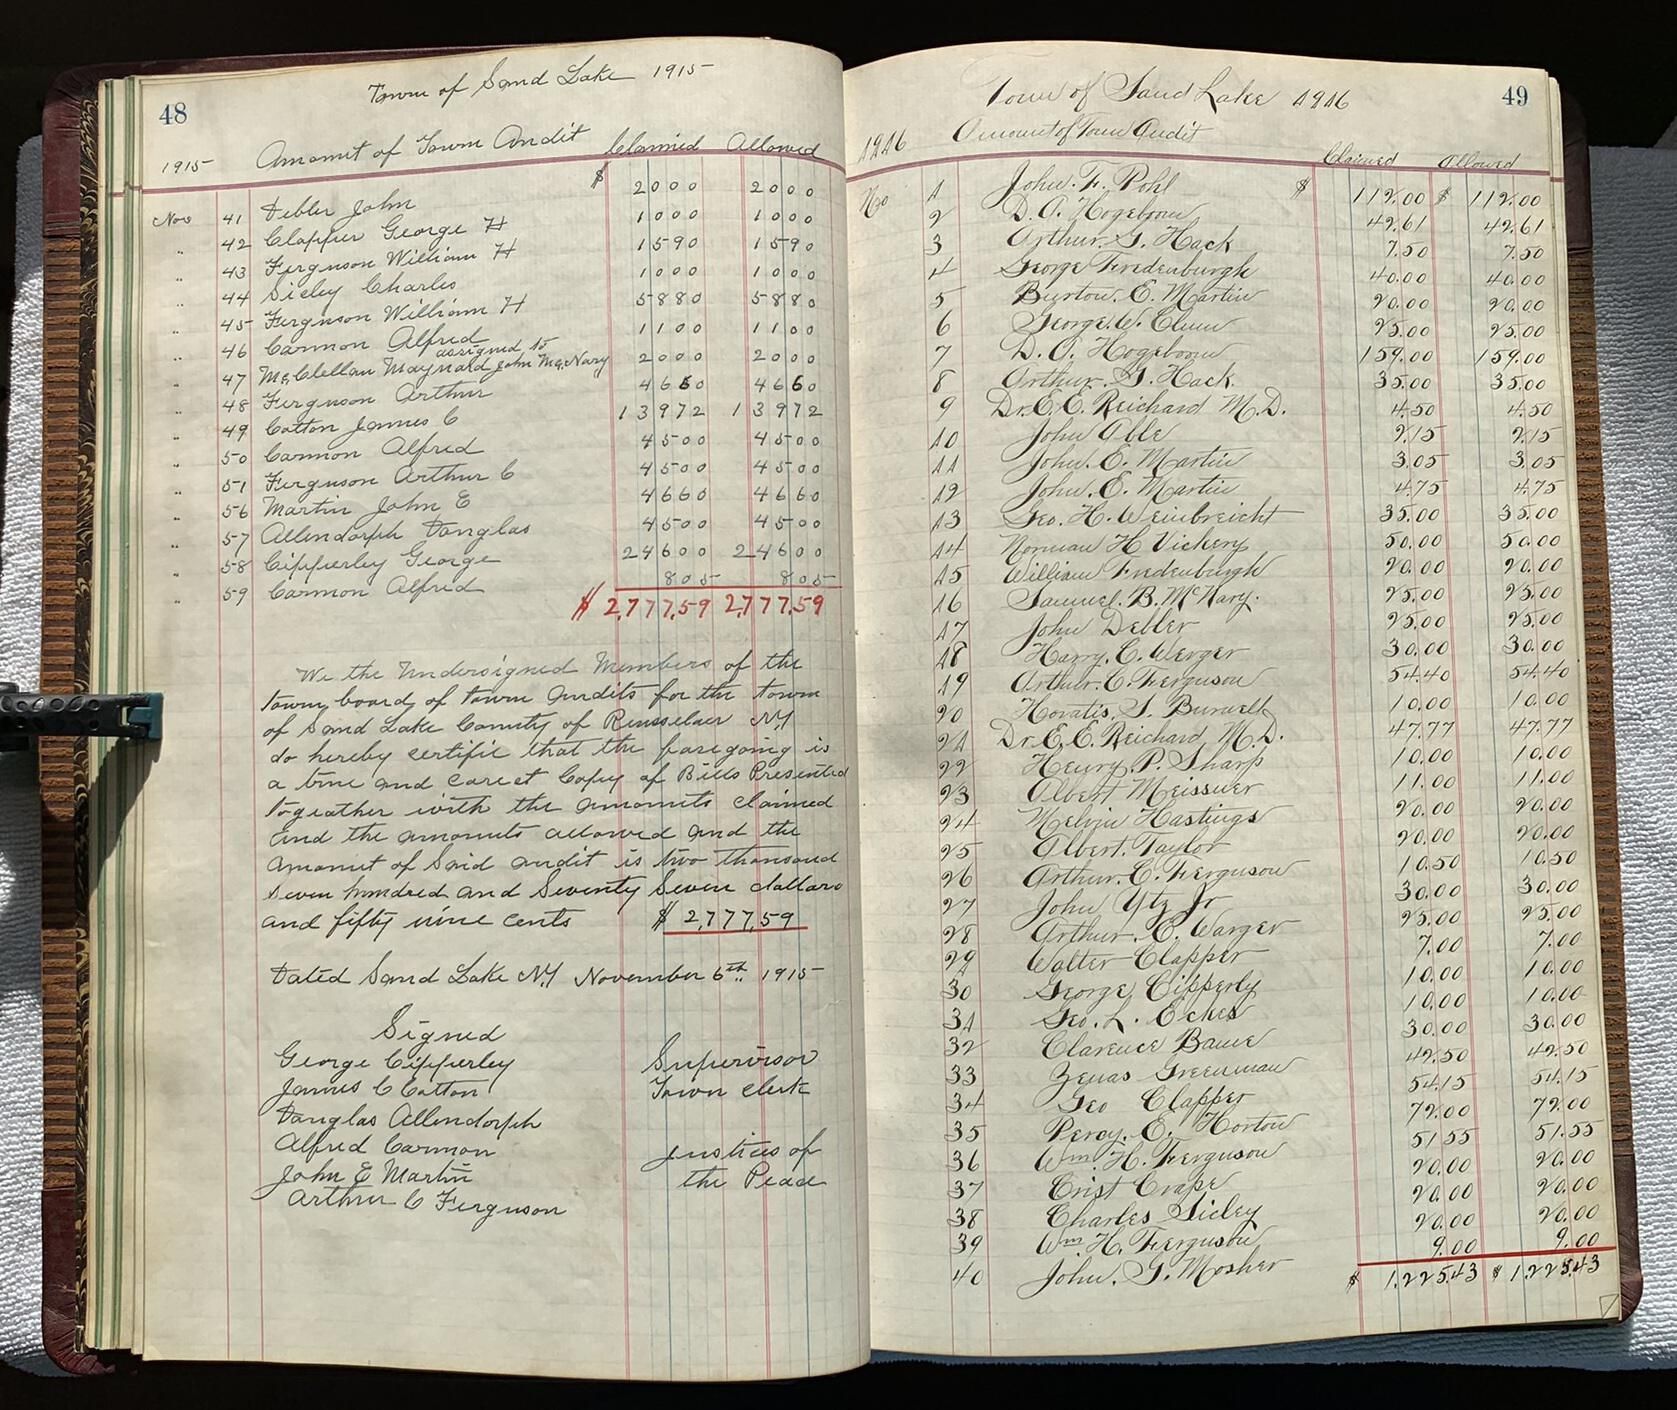 48
Town of Sand Lake 1915
1915 Amount of Town Audit Claimed Allowed
Nov 41 Debler John $ 2000 2000
" 42 Clapper George H 1000 1000
" 43 Ferguson William H 1590 1590
" 44 Sicley Charles 1000 1000
" 45 Ferguson William H 5880 5880
" 46 Carmon Alfred 1100 1100
assigned to
" 47 McClellan Maynard John McNary 2000 2000
" 48 Ferguson Arthur 4660 4660
" 49 Cotton James C 13972 13972
" 50 Carmon Alfred 4500 4500
" 51 Ferguson Arthur C 4500 4500
" 56 Martin John E 4660 4660
" 57 Allendorph Douglas 4500 4500
" 58 Cipperley George 24600 24600
" 59 Carmon Alfred 805 805
$ 2,777.59 2,777.59
We the Undersigned Members of the
town board of town audits for the town
of Sand Lake County of Rensselaer NY
do hereby certifie that the foregoing is
a true and carect Copey of Bills Presented
togeather with the amounts claimed
and the amounts allowed and the
amount of Said audit is two thousand
Seven hundred and Seventy Seven dollars
and fifty nine cents $ 2,777.59
Dated Sand Lake NY November 6th 1915
Signed
George Cipperley Supervisor
James C Cotton Town clerk
Douglas Allendorph
Alfred Carmon Justices of
John E Martin the Peace
Arthur C Ferguson
49
Town of Sand Lake 1916
1916 Amount of Town Audit Claimed Allowed
No 1 John. F. Pohl $ 112.00 $ 112.00
2 D. A. Hogeboom 42.61 42.61
3 Arthur. G. Hack 7.50 7.50
4 George Fredenburgh 40.00 40.00
5 Burton. E. Martin 20.00 20.00
6 George. W. Clum 25.00 25.00
7 D. A. Hogeboom 159.00 159.00
8 Arthur. G. Hack. 35.00 35.00
9 Dr. E. E. Reichard M.D. 4.50 4.50
10 John Able 2.15 2.15
11 John. E. Martin 3.05 3.05
12 John. E. Martin 4.75 4.75
13 Geo. H. Weinbreicht 35.00 35.00
14 Norman H Vickery 50.00 50.00
15 William Fredenburgh 20.00 20.00
16 Samuel. B. McNary. 25.00 25.00
17 John Debler 25.00 25.00
18 Harry. C. Werger 30.00 30.00
19 Arthur. C. Ferguson 54.40 54.40
20 Horatis. S. Burwell 10.00 10.00
21 Dr. E. E. Reichard M.D. 47.77 47.77
22 Henry. P. Sharp 10.00 10.00
23 Albert Meissner 11.00 11.00
24 Melvin Hastings 20.00 20.00
25 Albert. Taylor 20.00 20.00
26 Arthur. C. Ferguson 10.50 10.50
27 John Utz Jr 30.00 30.00
28 Arthur. E. Warger 25.00 25.00
29 Walter Clapper 7.00 7.00
30 George Cipperly 10.00 10.00
31 Geo. L. Eckes 10.00 10.00
32 Clarence Bame 30.00 30.00
33 Zenas Greenman 42.50 42.50
34 Geo Clapper 54.15 54.15
35 Percy. E. Horton 72.00 72.00
36 Wm. H. Ferguson 51.55 51.55
37 Crist Crape 20.00 20.00
38 Charles Sicley 20.00 20.00
39 Wm H. Ferguson 20.00 20.00
40 John. G. Mosher 9.00 9.00
$ 1,225.43 $ 1,225.43